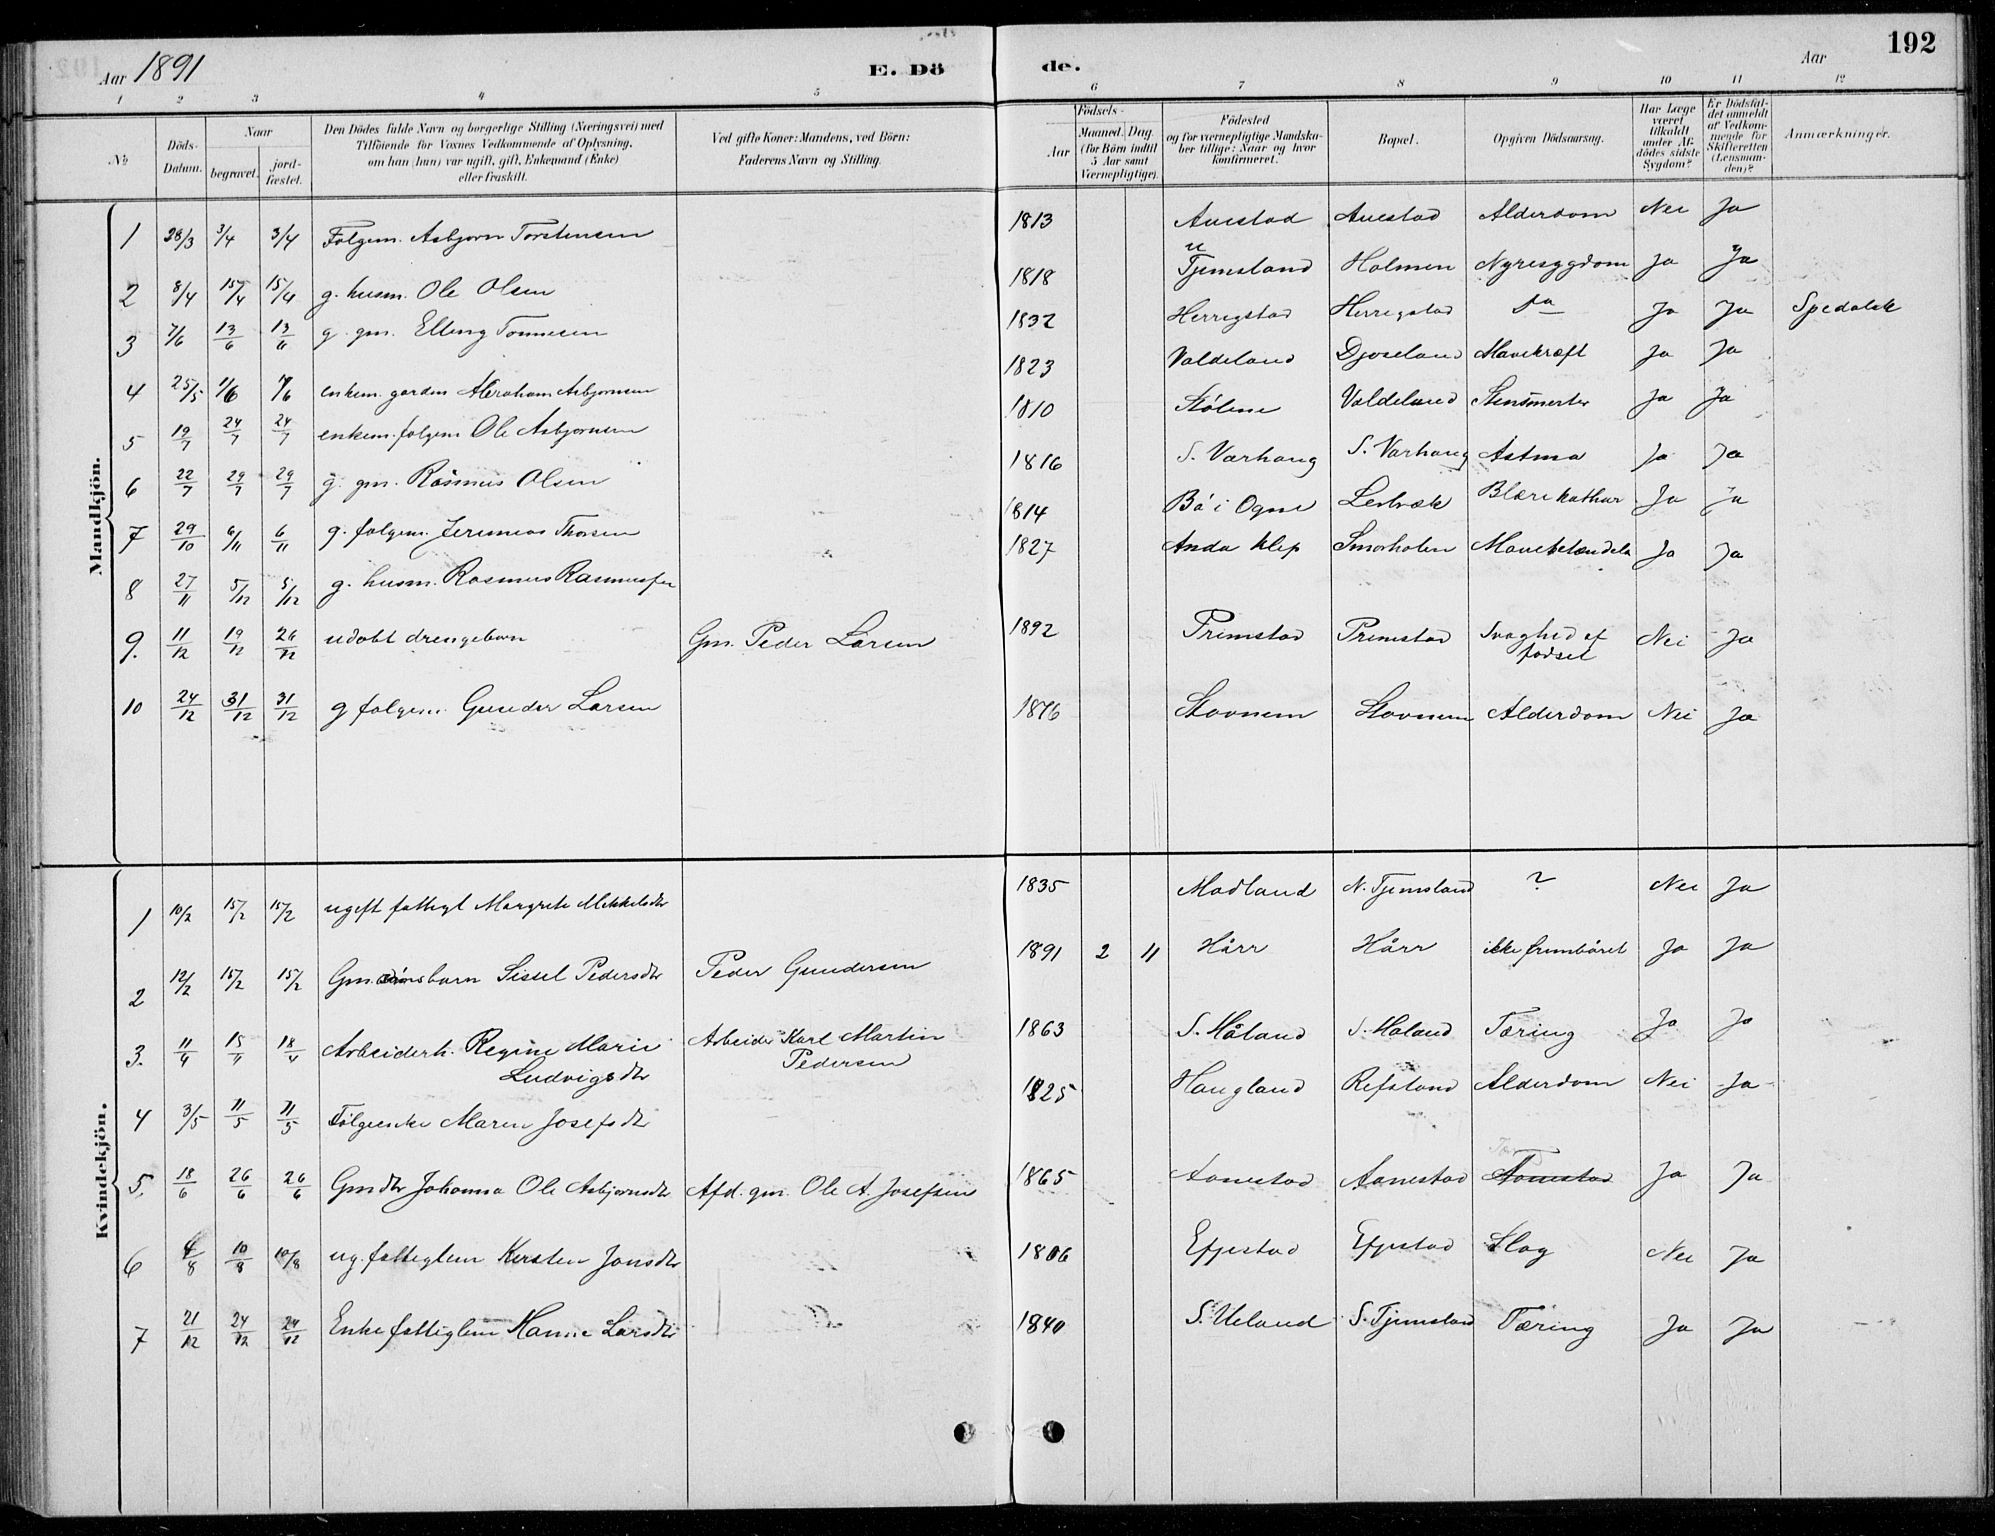 Aar 1891 E. Dö de. Aar 192
1 2 3 4 5 6 7 8 9 10 11 12
No
Döds-Datum.
Naar
begravet.
jord-fæstet.
Den Dödes fulde Navn og borgerlige Stilling (Næringsvei) med
Tilföiende for Voxnes Vedkommende af Oplysning,
om han (hun) var ugift, gift, Enkemand (Enke)
eller fraskilt.
Ved gifte Koner: Mandens, ved Börn:
Faderens Navn og Stilling.
Födsels-
Aar
Maaned. Dag.
(for Börn indtil
5 Aar samt
Værnepligtige).
Födested
og for værnepligtige Mandska-
ber tillige: Naar og hvor
konfirmeret.
Bopæl.
Opgiven Dödsaarsag.
Har Læge
været
tilkaldt
under Af-
dödes sidste
Sygdom?
Er Dödsfal-
det anmeldt
af Vedkom-
mende for
Skifteretten
(Lensman-
den)?
Anmærkninger.
Mandkjön.
1 28/3 3/4 3/4 Folgem. Asbjorn Torstensen 1813 Auestad Auestad Alderdom Nei Ja
2 8/4 15/4 15/4 g. husm. Ole Olsen 1818 Tjemsland Holmen Nyresygdom Ja Ja
3 7/6 13/6 13/6 g. gm. Elling Tonnesen 1832 Herrigstad Herrigstad Do Ja Ja Spedalsk
4 25/5 1/6 1/6 enkem. garden Abraham Asbjornsen 1823 Valdeland Djoseland Mavekræft Ja Ja
5 19/7 24/7 24/7 enkem. folgem Ole Asbjornsen 1810 Stølene Valdeland Stensmerter Ja Ja
6 22/7 29/7 29/7 g. gm. Rasmus Olsen 1816 S. Varhaug S. Varhaug Astma Ja Ja
7 29/10 6/11 6/11 g. folgem. Jeremias Thorsen 1814 Bö i Ogne Ledvæk Blærekathar Ja Ja
8 27/11 5/12 5/12 g. husm. Rasmus Rasmussen 1827 Anda Klep Smorholen Ja Ja
9. 11/12 19/12 26/12 udøbt drengebarn Gm. Peder Larsen 1892 Primstad Primstad Svaghed af
fødsel Nei Ja
10 24/12 31/12 31/12 g folgem. Gunder Larsen 1816 Stovnem Stovnem Alderdom Nei Ja
Kvindekjön.
1 10/2 15/2 15/2 ugift fattigl Margrete Mikkelsdtr 1835 Madland N. Tjemsland ? Nei Ja
2 12/2 15/2 15/2 Gm. barn Sissel Pedersdtr Peder Gundersen 1891 2 11 Hårr Hårr ikke frembåret Ja Ja
3. 11/4 15/4 18/4 Arbeiderh. Regine Marie
Ludvigsdtr Arbeider Karl Martin
Pedersen 1863 S. Håland S. Håland Tæring Ja Ja
4 3/5 11/5 11/5 Følgeenke Maren Josefsdtr 1825 Haugland Refsland Alderdom Nei Ja
5. 18/6 26/6 26/6 Gmdtr Johanna Ole Asbjornsdtr Afd. gm. Ole A. Josefsen 1865 Aanestad Aanestad Aanestad Ja Ja
6 4/8 10/8 10/8 ug. fattiglem Kirsten Jonsdtr 1806 Efjestad Efjestad Slag Nei Ja
7 21/12 24/12 24/12 Enke fattiglem Hanne Larsdtr 1840 S. Ueland S. Tjemsland Tæring Ja Ja